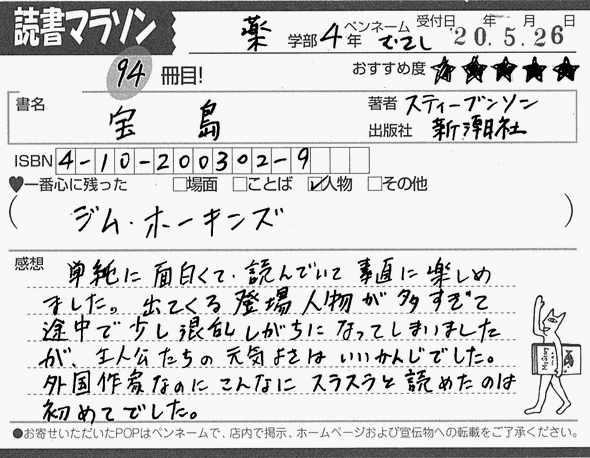 読書マラソン
薬 学部 4年 ペンネーム むさし 受付日 年 月 日
20.5.26
94 冊目! おすすめ度 ★★★★★
書名 宝島 著者 スティーブンソン
出版社 新潮社
ISBN 4-10-200302-9
♥一番心に残った □場面 □ことば ☑人物 □その他
(ジム・ホーキンズ)
感想 単純に面白くて、読んでいて素直に楽しめ
ました。出てくる登場人物が多すぎて
途中で少し混乱しがちになってしまいました
が、主人公たちの元気よさはいいかんじでした。
外国作家なのにこんなにスラスラと読めたのは
初めてでした。
●お寄せいただいたPOPはペンネームで、店内で掲示、ホームページおよび宣伝物への転載をご了承ください。